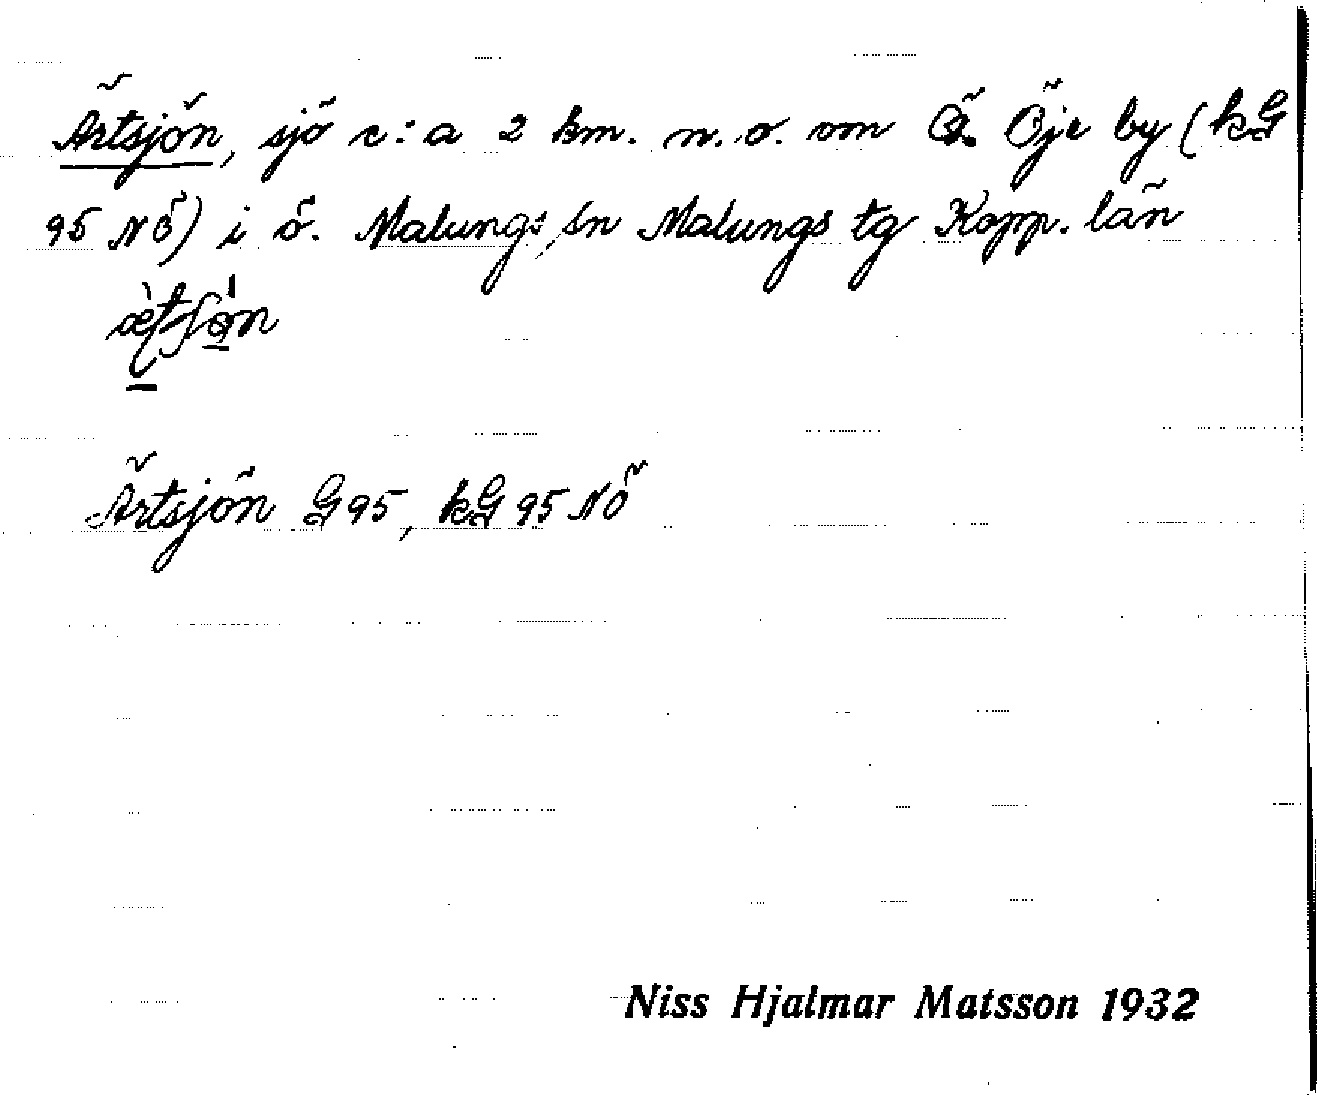 Ärtsjön, sjö c:a 2 km. n. o. om Ö. Öje by (kG
95 NÖ) i ö. Malungs sn Malungs tg Kopp. län
Ärtsjön G 95, kG 95 NÖ
Niss Hjalmar Matsson 1932